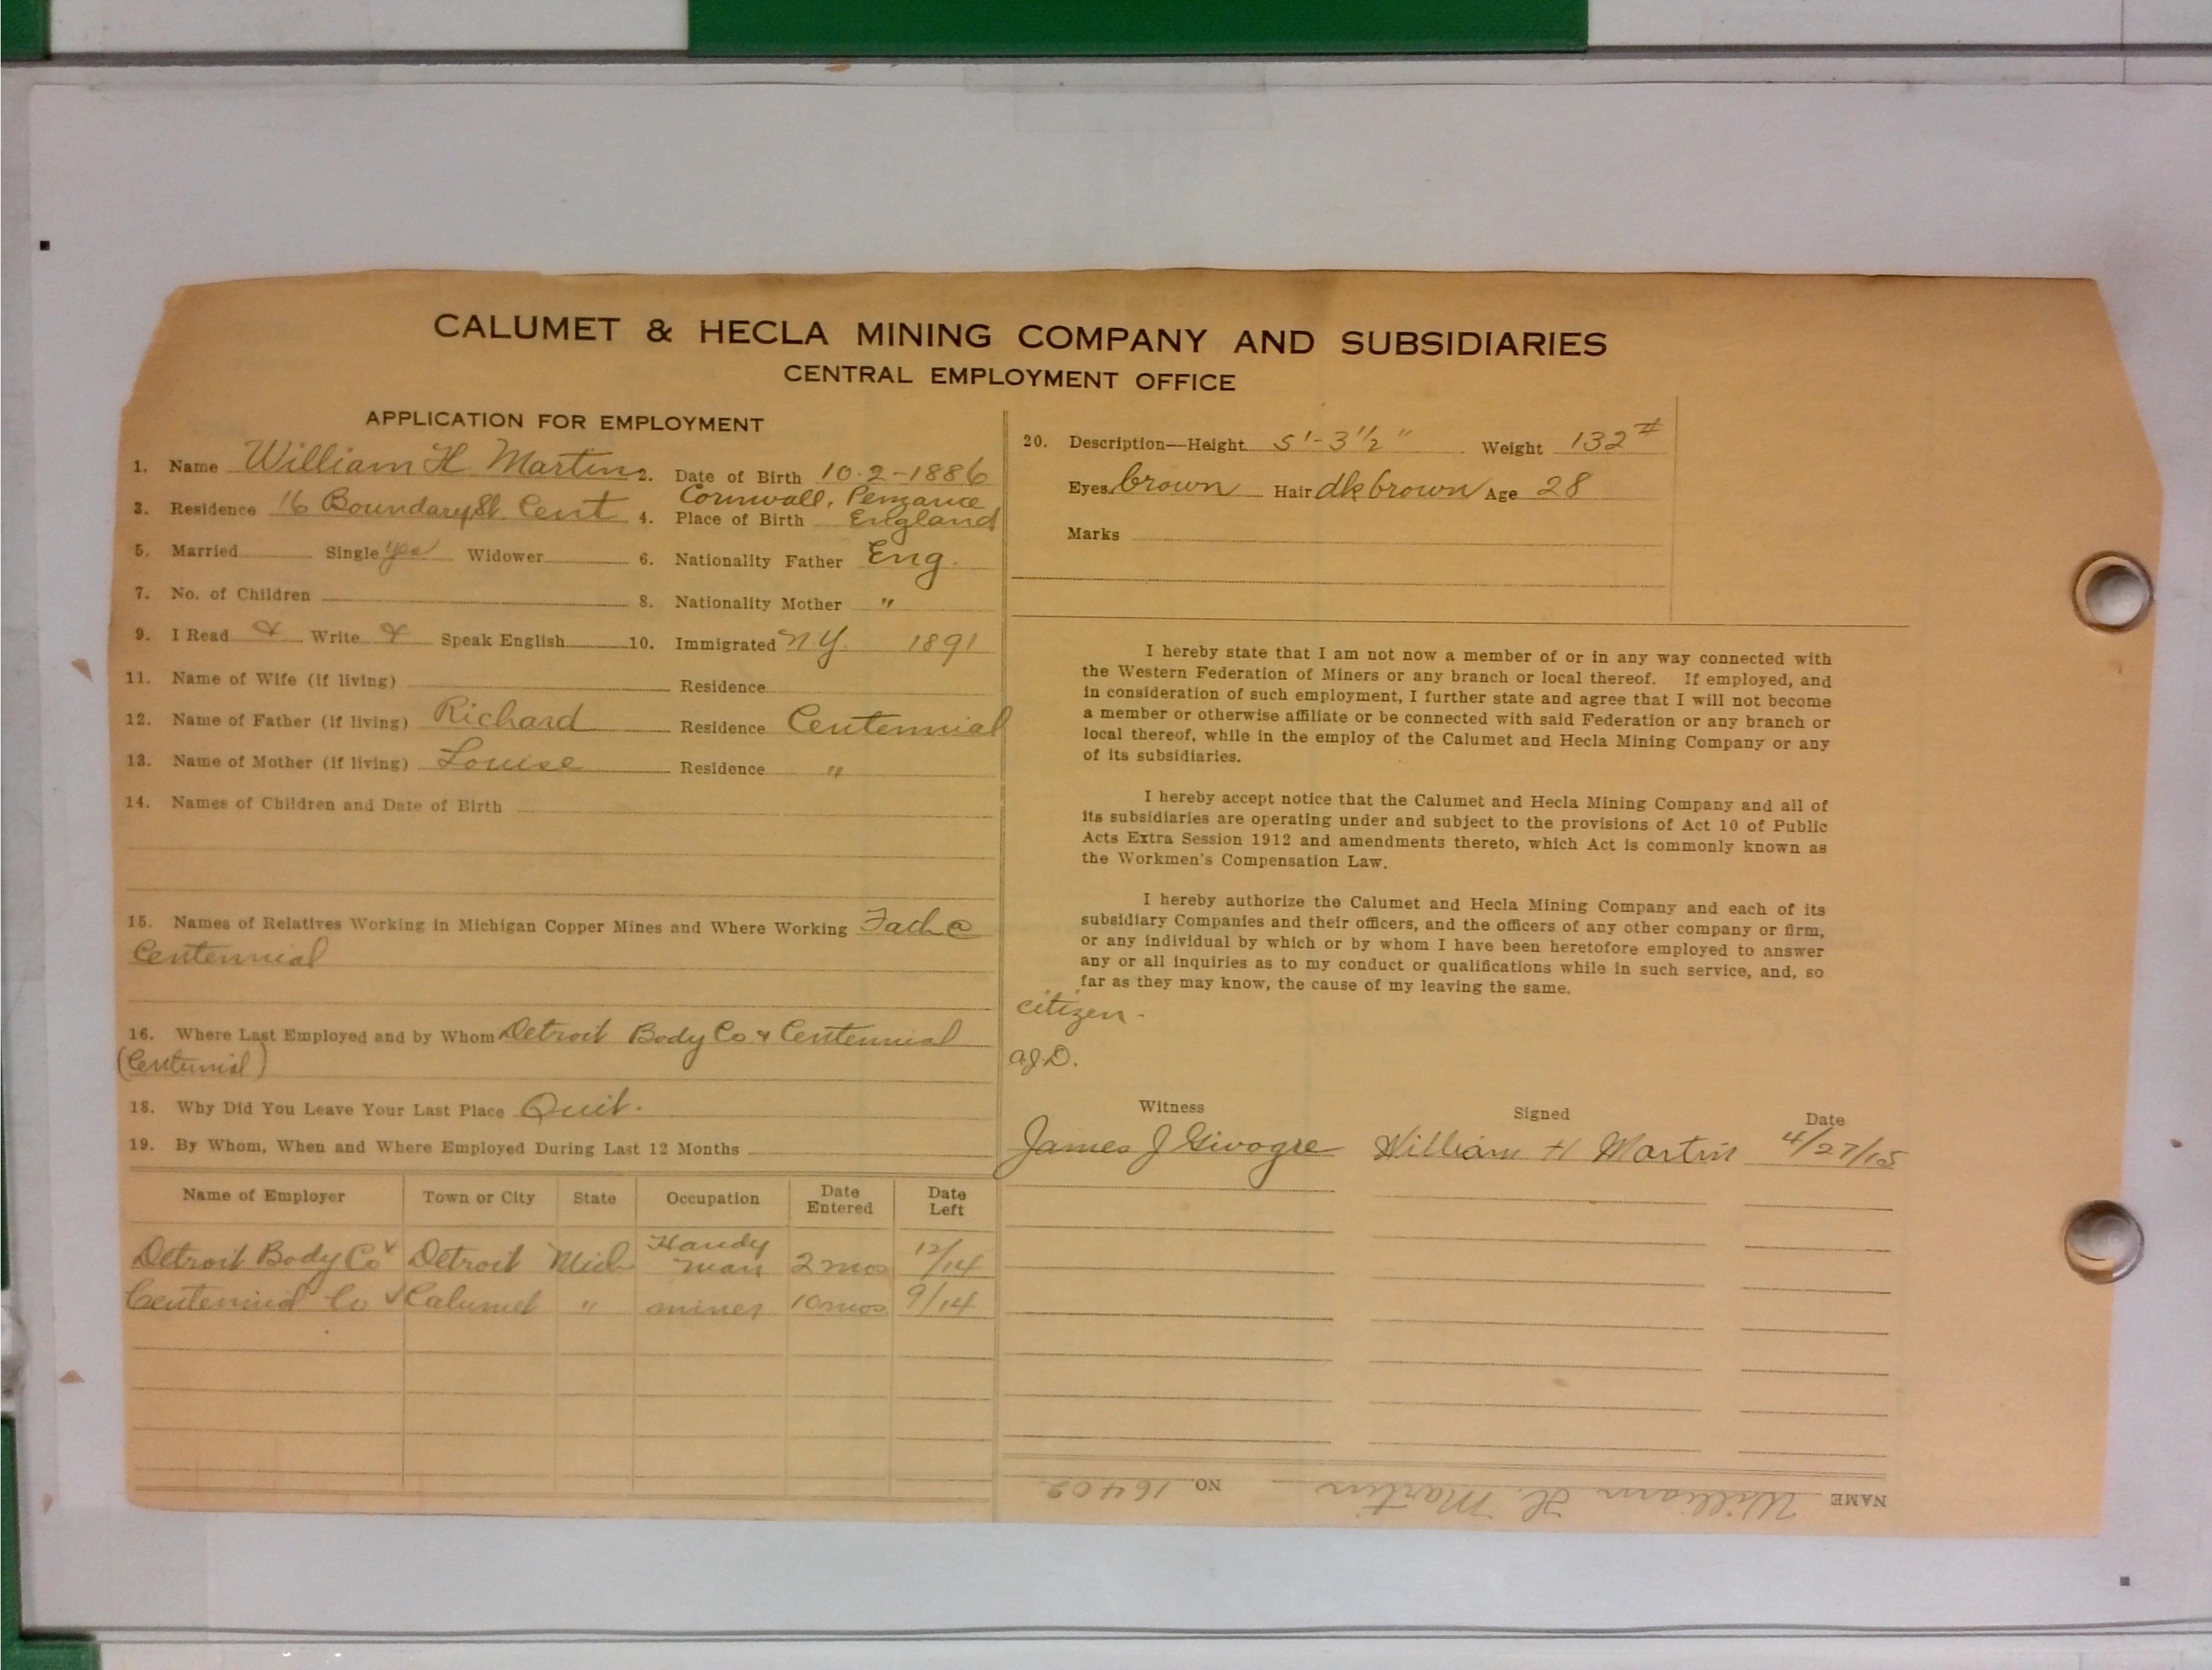 CALUMET & HECLA MINING COMPANY AND SUBSIDIARIES
CENTRAL EMPLOYMENT OFFICE
APPLICATION FOR EMPLOYMENT
1. Name William H Martin 2. Date of Birth 10-2-1886
3. Residence 16 Boundary St. Cent 4. Place of Birth Cornwall, Penzance England
5. Married Single yes Widower 6. Nationality Father Eng.
7. No. of Children 8. Nationality Mother "
9. I Read & Write & Speak English 10. Immigrated N.Y. 1891
11. Name of Wife (if living) Residence
12. Name of Father (if living) Richard Residence Centennial
13. Name of Mother (if living) Louise Residence "
14. Names of Children and Date of Birth
15. Names of Relatives Working in Michigan Copper Mines and Where Working Fach @
Centennial
16. Where Last Employed and by Whom Detroit Body Co & Centennial
(Centennial)
18. Why Did You Leave Your Last Place Quit.
19. By Whom, When and Where Employed During Last 12 Months
Name of Employer Town or City State Occupation Date Entered Date Left
Detroit Body Co ✓ Detroit Mich Handy man 2 mos 12/14
Centennial Co ✓ Calumet " miner 10 mos 9/14
20. Description—Height 5'-3½" Weight 132#
Eyes brown Hair dk brown Age 28
Marks
I hereby state that I am not now a member of or in any way connected with
the Western Federation of Miners or any branch or local thereof. If employed, and
in consideration of such employment, I further state and agree that I will not become
a member or otherwise affiliate or be connected with said Federation or any branch or
local thereof, while in the employ of the Calumet and Hecla Mining Company or any
of its subsidiaries.
I hereby accept notice that the Calumet and Hecla Mining Company and all of
its subsidiaries are operating under and subject to the provisions of Act 10 of Public
Acts Extra Session 1912 and amendments thereto, which Act is commonly known as
the Workmen's Compensation Law.
I hereby authorize the Calumet and Hecla Mining Company and each of its
subsidiary Companies and their officers, and the officers of any other company or firm,
or any individual by which or by whom I have been heretofore employed to answer
any or all inquiries as to my conduct or qualifications while in such service, and, so
far as they may know, the cause of my leaving the same.
citizen.
a.J.D.
Witness Signed Date
James J Givogre William H Martin 4/27/15
NAME William H. Martin NO. 16402